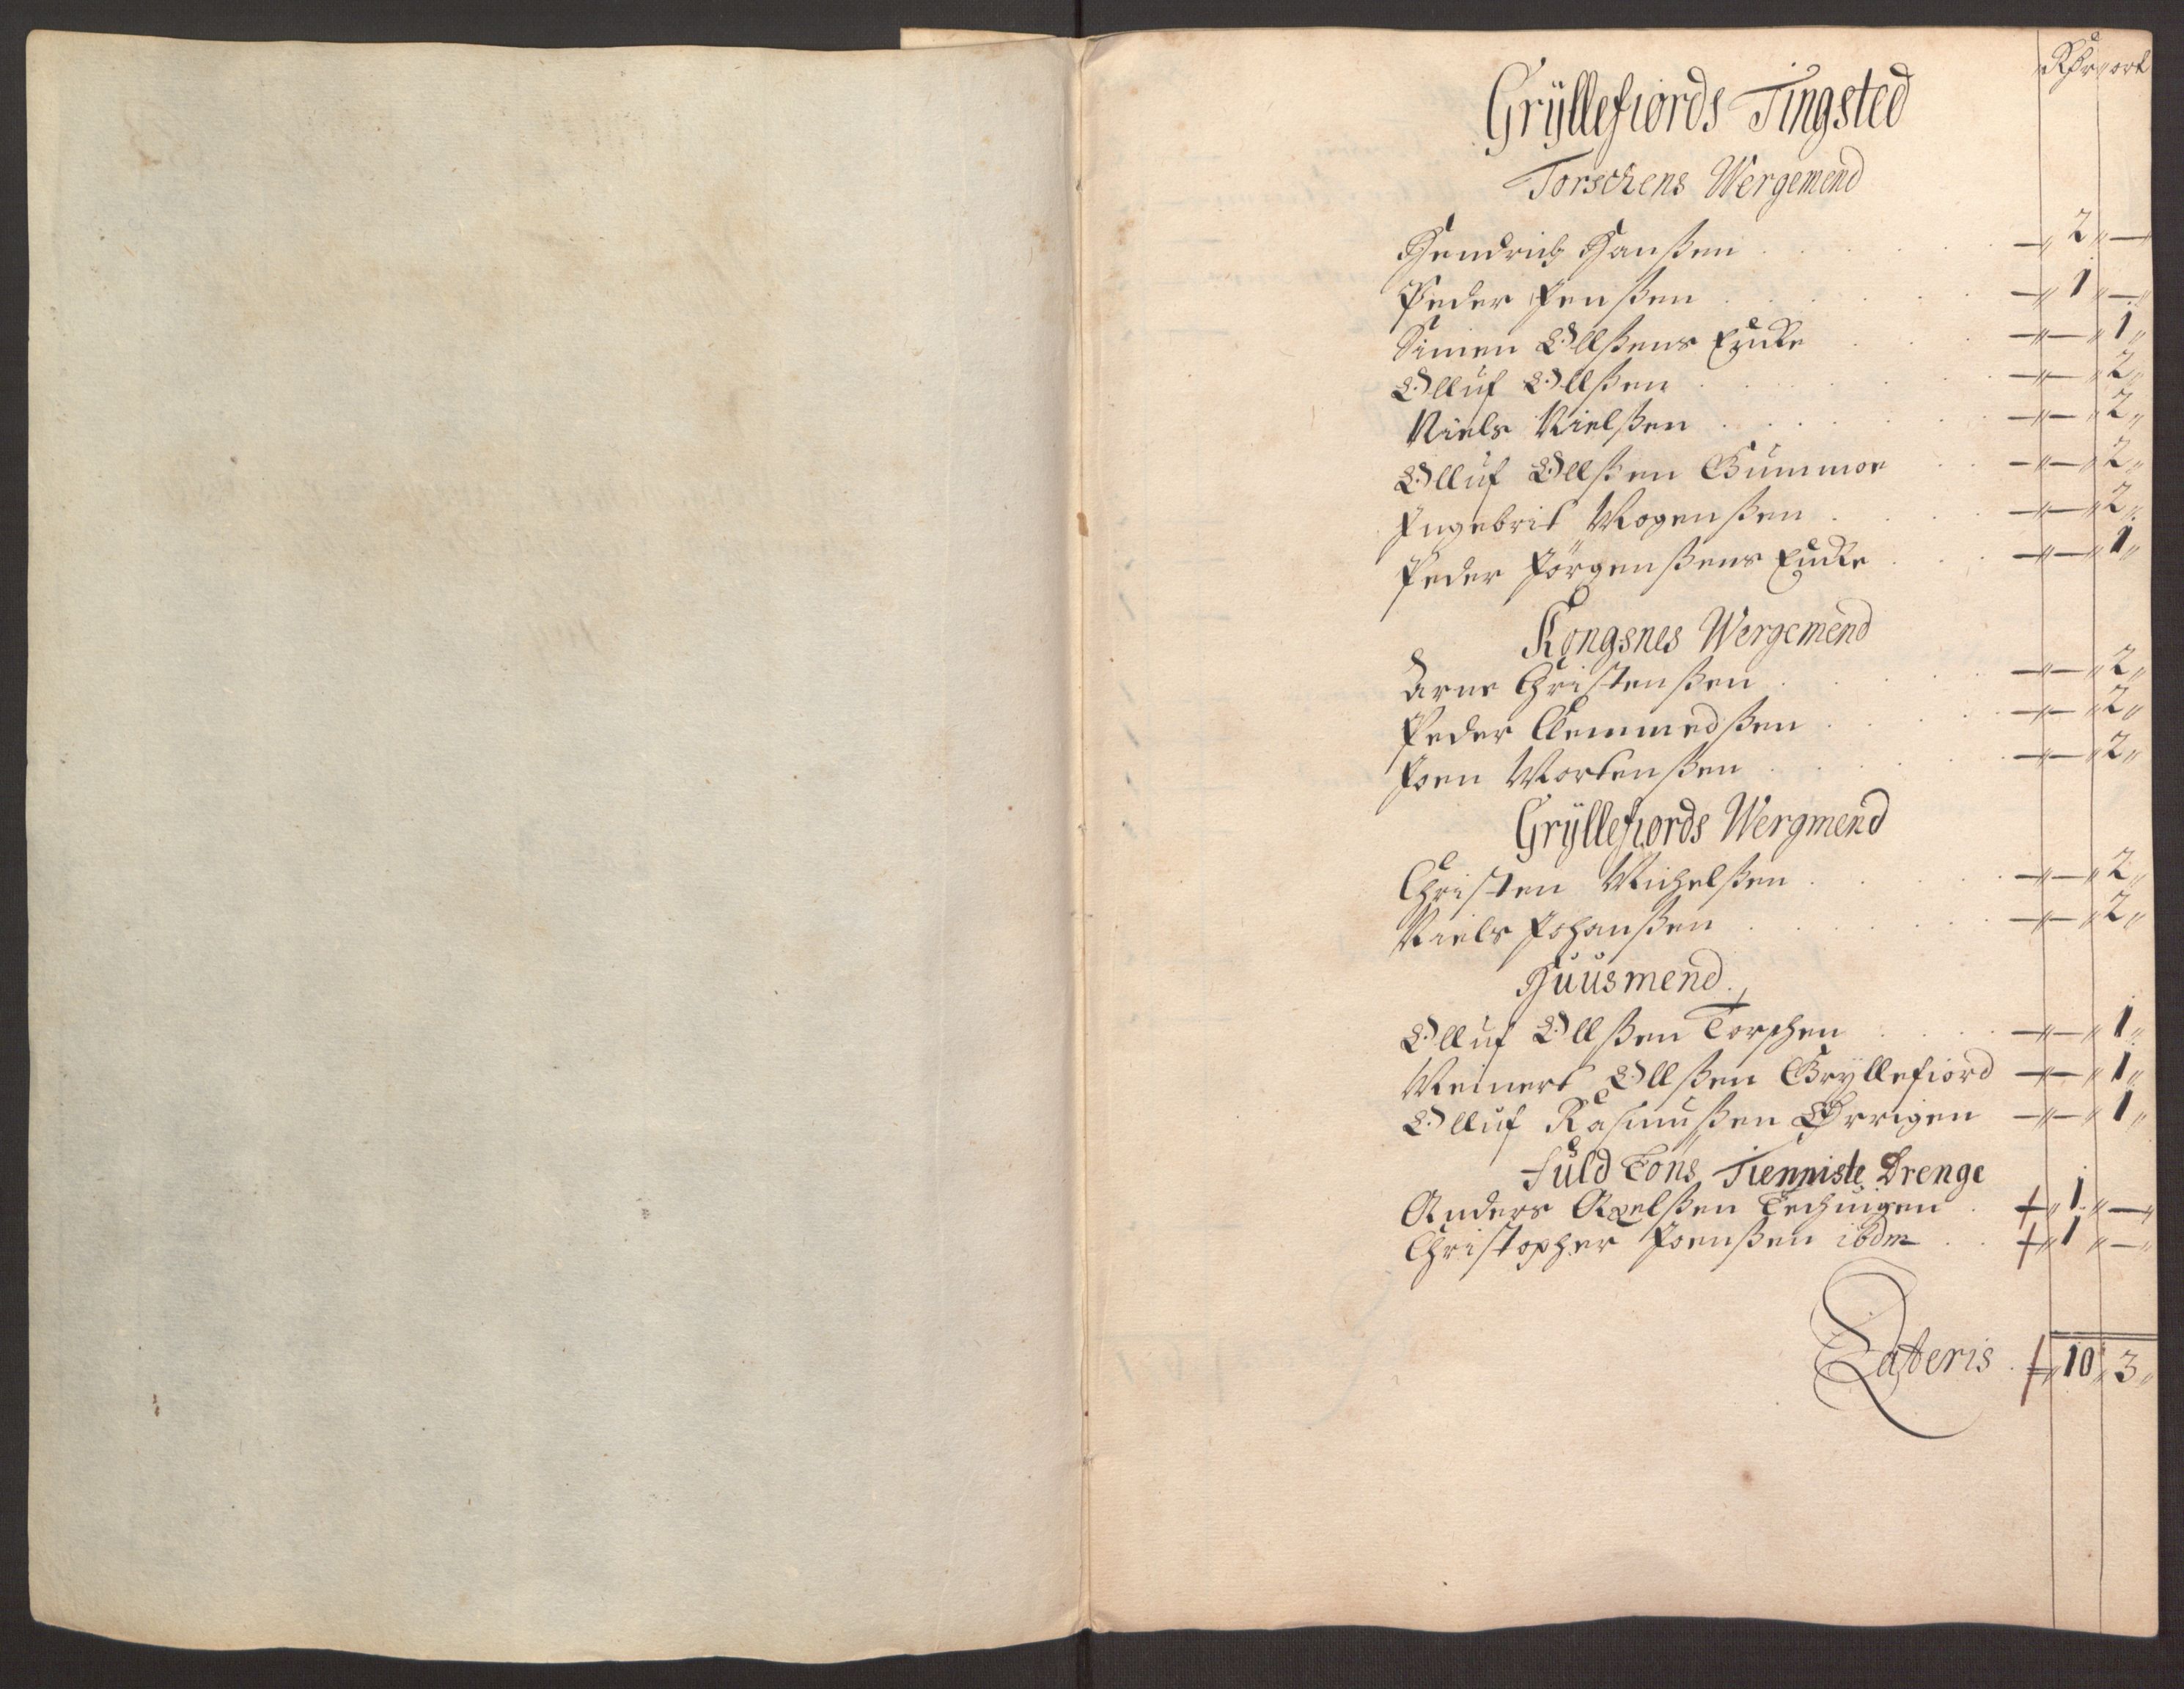 Rdr ort
Gryllefiords Tingsted
Torschens Wergemend
Hendrich Hanßen . . . . . . — " 2 " —
Peder Jenßen . . . . . . — " 1 " —
Simen Ollßens Encke . . . — " — " 1 "
Olluf Ollßen . . . . . . — " — " 2 "
Niels Nielßen . . . . . . — " — " 2 "
Olluf Ollßen Gummoe . . — " — " 2 "
Ingebrit Mogenßen . . . . — " — " 2 "
Peder Jörgenßens Encke . . . — " — " 1 "
Kongsnes Wergemend
Arne Christenßen . . . . . — " — " 2 "
Peder Clemmedßen . . . . — " — " 2 "
Joen Mortenßen . . . . . — " — " 2 "
Gryllefiords Wergmend
Christen Michelßen . . . . — " — " 2 "
Niels Johanßen . . . . . . — " — " 2 "
Huusmend.
Olluf Ollßen Torschen . . . . — " — " 1 "
Meinert Ollßen Gryllefiord — " — " 1 "
Olluf Rasmußen Ørrigen — " — " 1 "
Fuld Lons Tienniste Drenge
Anders Axelßen . — " 1 " —
Christopher Joenßen ibdm . . — " 1 " —
Lateris . — " 10 " 3 "